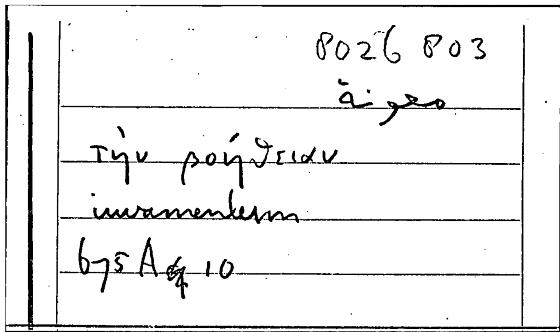 8026 803
معونة
τὴν βοήθειαν
iuvamentum
675 A 10